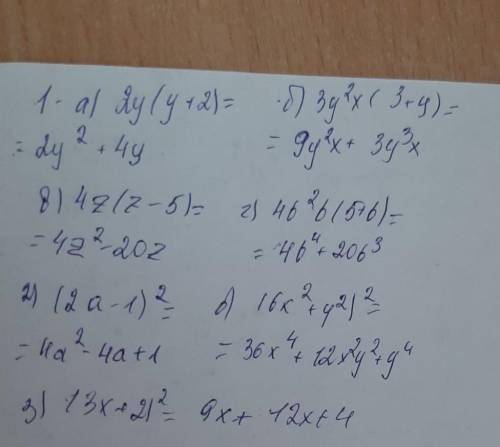 1. а) 2y(y+2)= б) 3y²x(3+y)=
= 2y² + 4y = 9y²x + 3y³x
в) 4z(z-5)= г) 4b²b(5+b)=
= 4z²-20z = 4b⁴+20b³
2) (2a-1)²= б) (6x²+y²)²=
= 4a²-4a+1 = 36x⁴+12x²y²+y⁴
3) (3x+2)²= 9x+12x+4